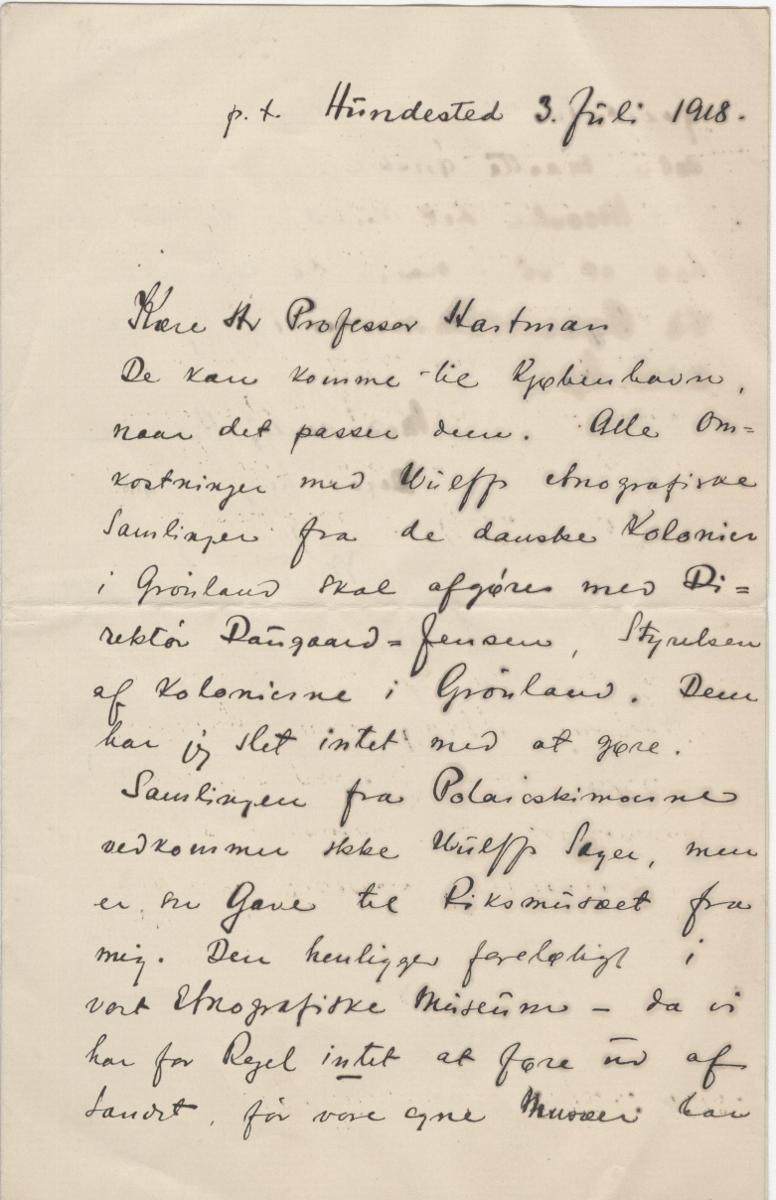 p. t. Hundested 3. Juli 1918.
Kære Hr Professor Hartman
De kan komme til Kjøbenhavn,
naar det passer dem. Alle Om=
kostninger med Wulffs etnografiske
Samlinger fra de danske Kolonier
i Grönland skal afgøres med Di=
rektör Daugaard=Jensen, Styrelsen
af Kolonierne i Grönland. Dem
har jeg slet intet med at gøre.
Samlingen fra Polareskimoerne
vedkommer ikke Wulffs Sager, men
er en Gave til Riksmusæet fra
mig. Den henligger foreløbigt i
vort Etnografiske Museum – da vi
har for Regel intet at føre ud af
Landet, för vore egne Musæer har